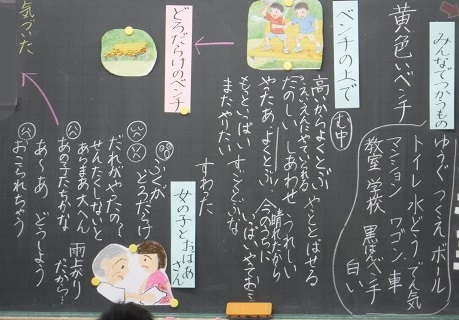 みんなでつかうもの
ゆうぐ つくえ ボール
トイレ 水どう でん気
マンション ワゴン 車
教室 学校 黒ばんベンチ
白い
黄色いベンチ
ベンチの上で
む中
高いからよくとぶ
やっとばせる
たのしい しあわせ
うれしい
やったあ よくとぶ!
晴れたから
今のうちに
もっといっぱい すごくとぶな
いっぱいやっておこ
またやりたい
どろだらけのベンチ
すわった
女の子とおばあさん
どろだらけ
だれがやったの?
せんたくしないと
あらまあ 大へん
あの子たちかな
雨上がりだから?
あ〜あ どうしよう
おこられちゃう
気づいた